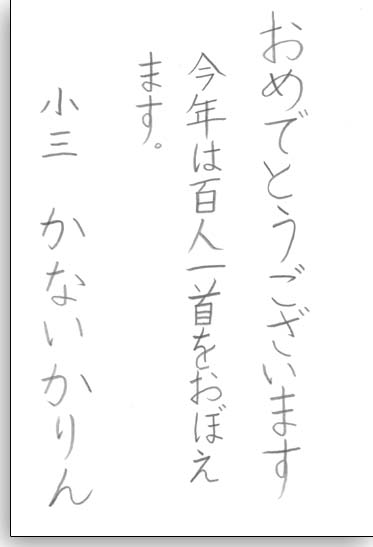 おめでとうございます
今年は百人一首をおぼえ
ます。
小三 かないかりん